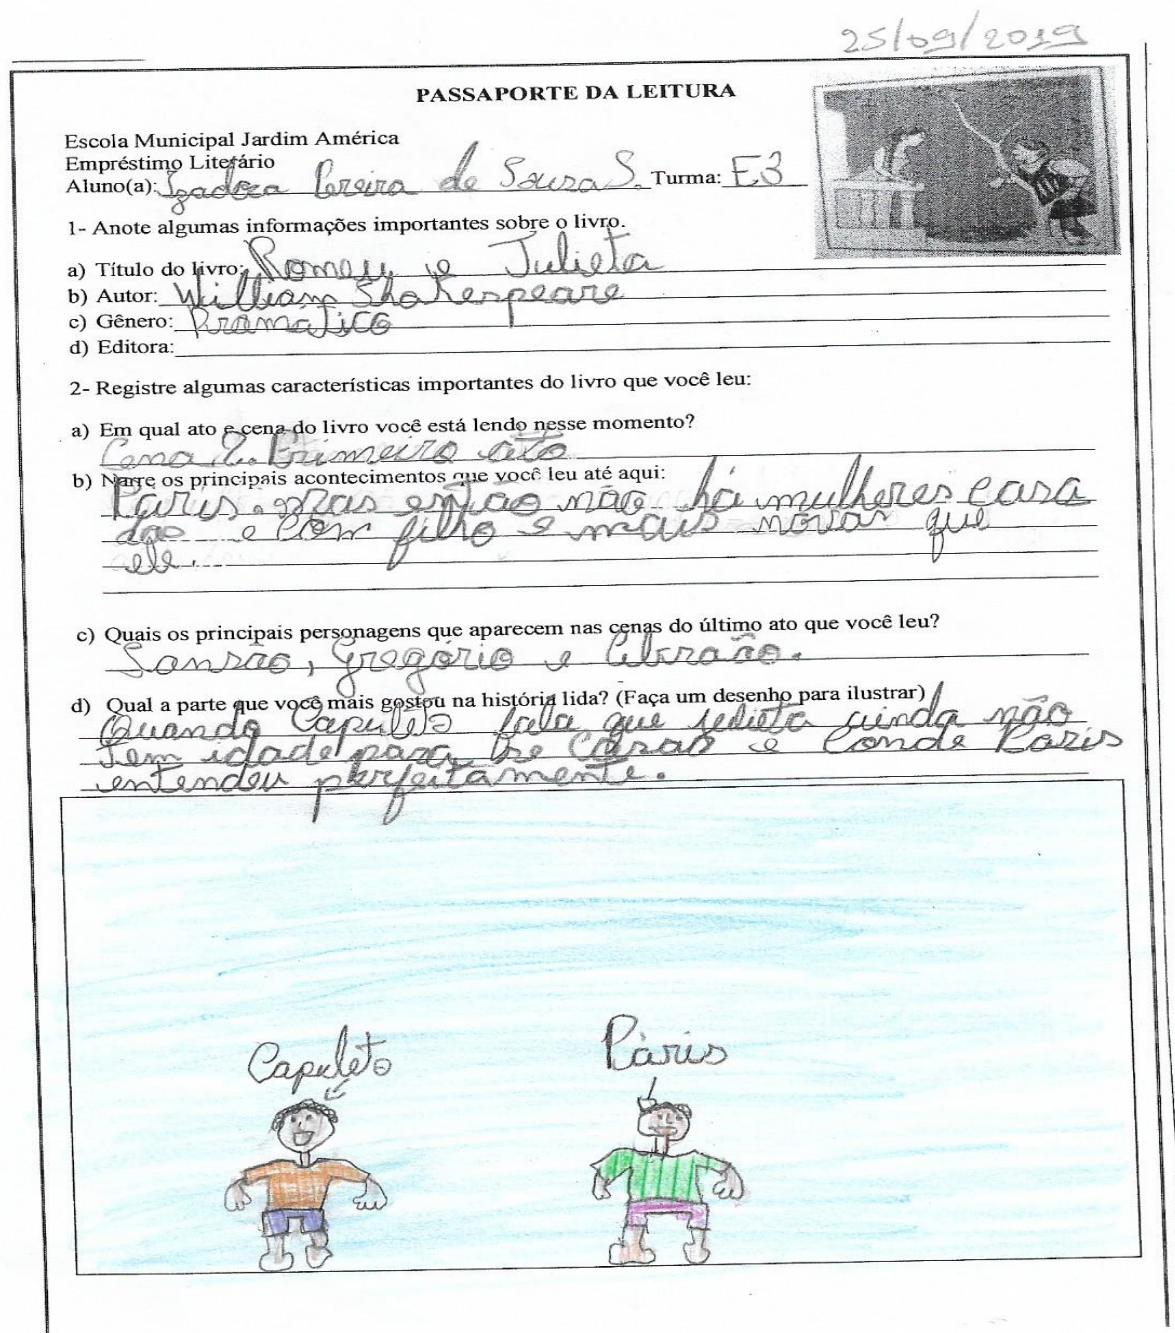 25/09/2019
PASSAPORTE DA LEITURA
Escola Municipal Jardim América
Empréstimo Literário
Aluno(a): Pereira de Souza S. Turma: E3
1- Anote algumas informações importantes sobre o livro.
a) Título do livro: Romeu e Julieta
b) Autor: William Shakespeare
c) Gênero: Dramático
d) Editora:
2- Registre algumas características importantes do livro que você leu:
a) Em qual ato e cena do livro você está lendo nesse momento?
Cena 2. Primeiro ato
b) Narre os principais acontecimentos que você leu até aqui:
Páris. Mas então não há mulheres casa
das e com filho e mais novas que
ele.
c) Quais os principais personagens que aparecem nas cenas do último ato que você leu?
Sansão, Gregório e Abraão.
d) Qual a parte que você mais gostou na história lida? (Faça um desenho para ilustrar)
Quando Capuleto fala que julieta ainda não
tem idade para se casar e Conde Paris
entendeu perfeitamente.
Capuleto
Páris